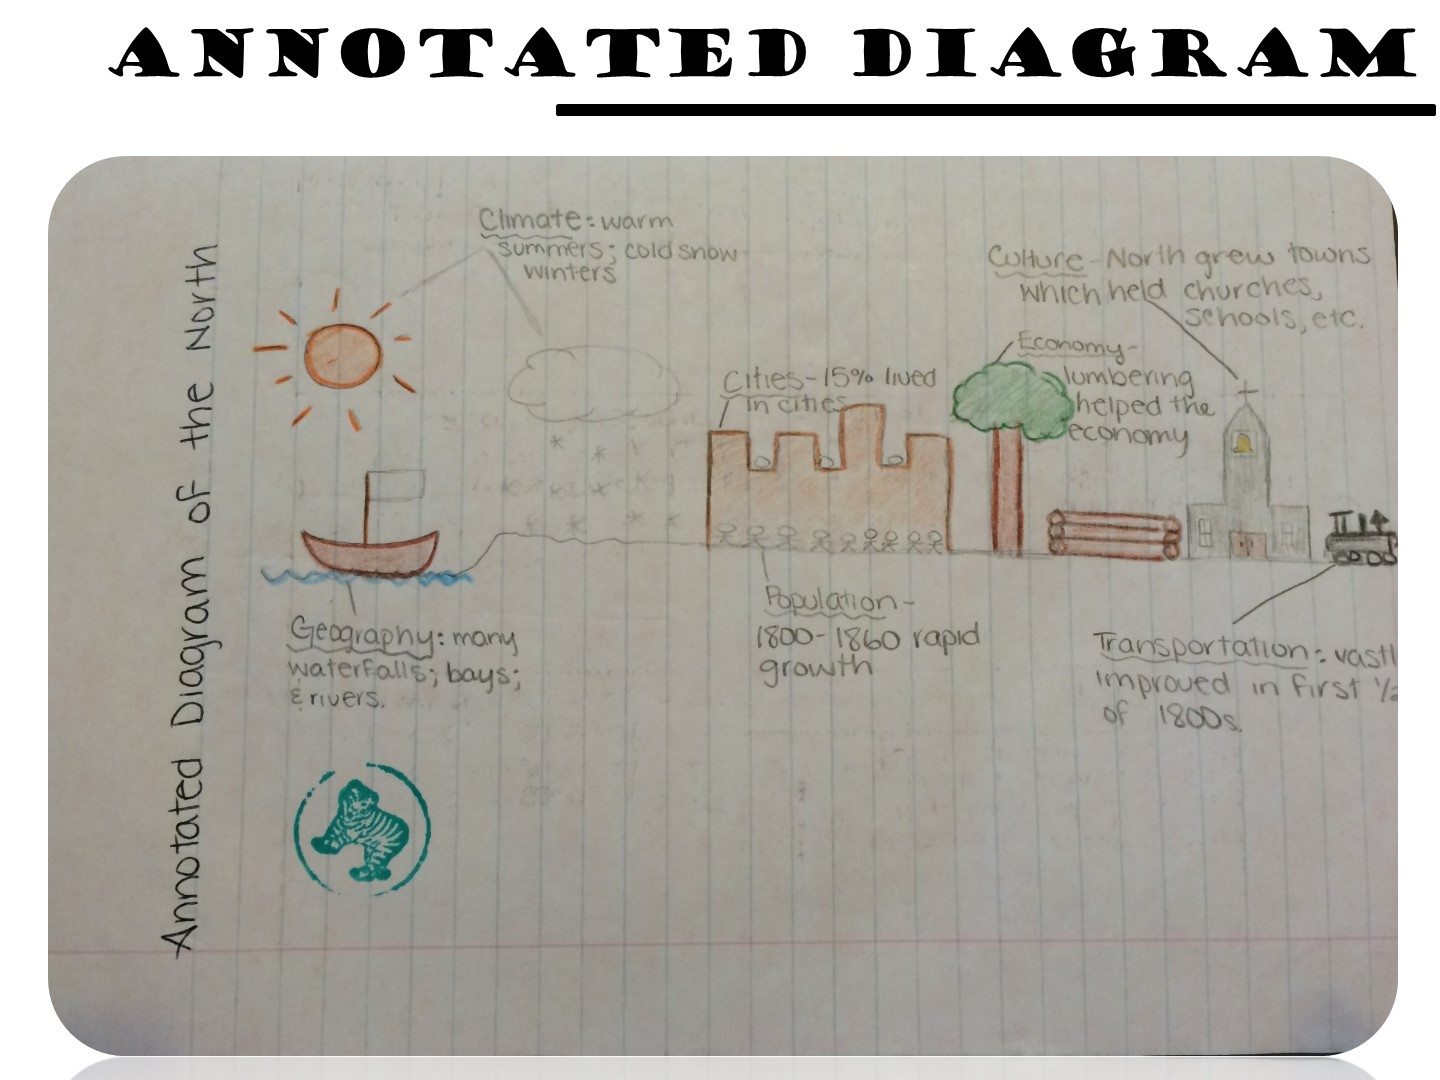 ANNOTATED DIAGRAM
Annotated Diagram of the North
Climate: warm
summers; cold snow
winters
Culture - North grew towns
which held churches,
schools, etc.
Economy -
lumbering
helped the
economy
Cities - 15% lived
in cities
Geography: many
waterfalls; bays;
& rivers.
Population -
1800-1860 rapid
growth
Transportation: vastl
improved in first 1/2
of 1800s.